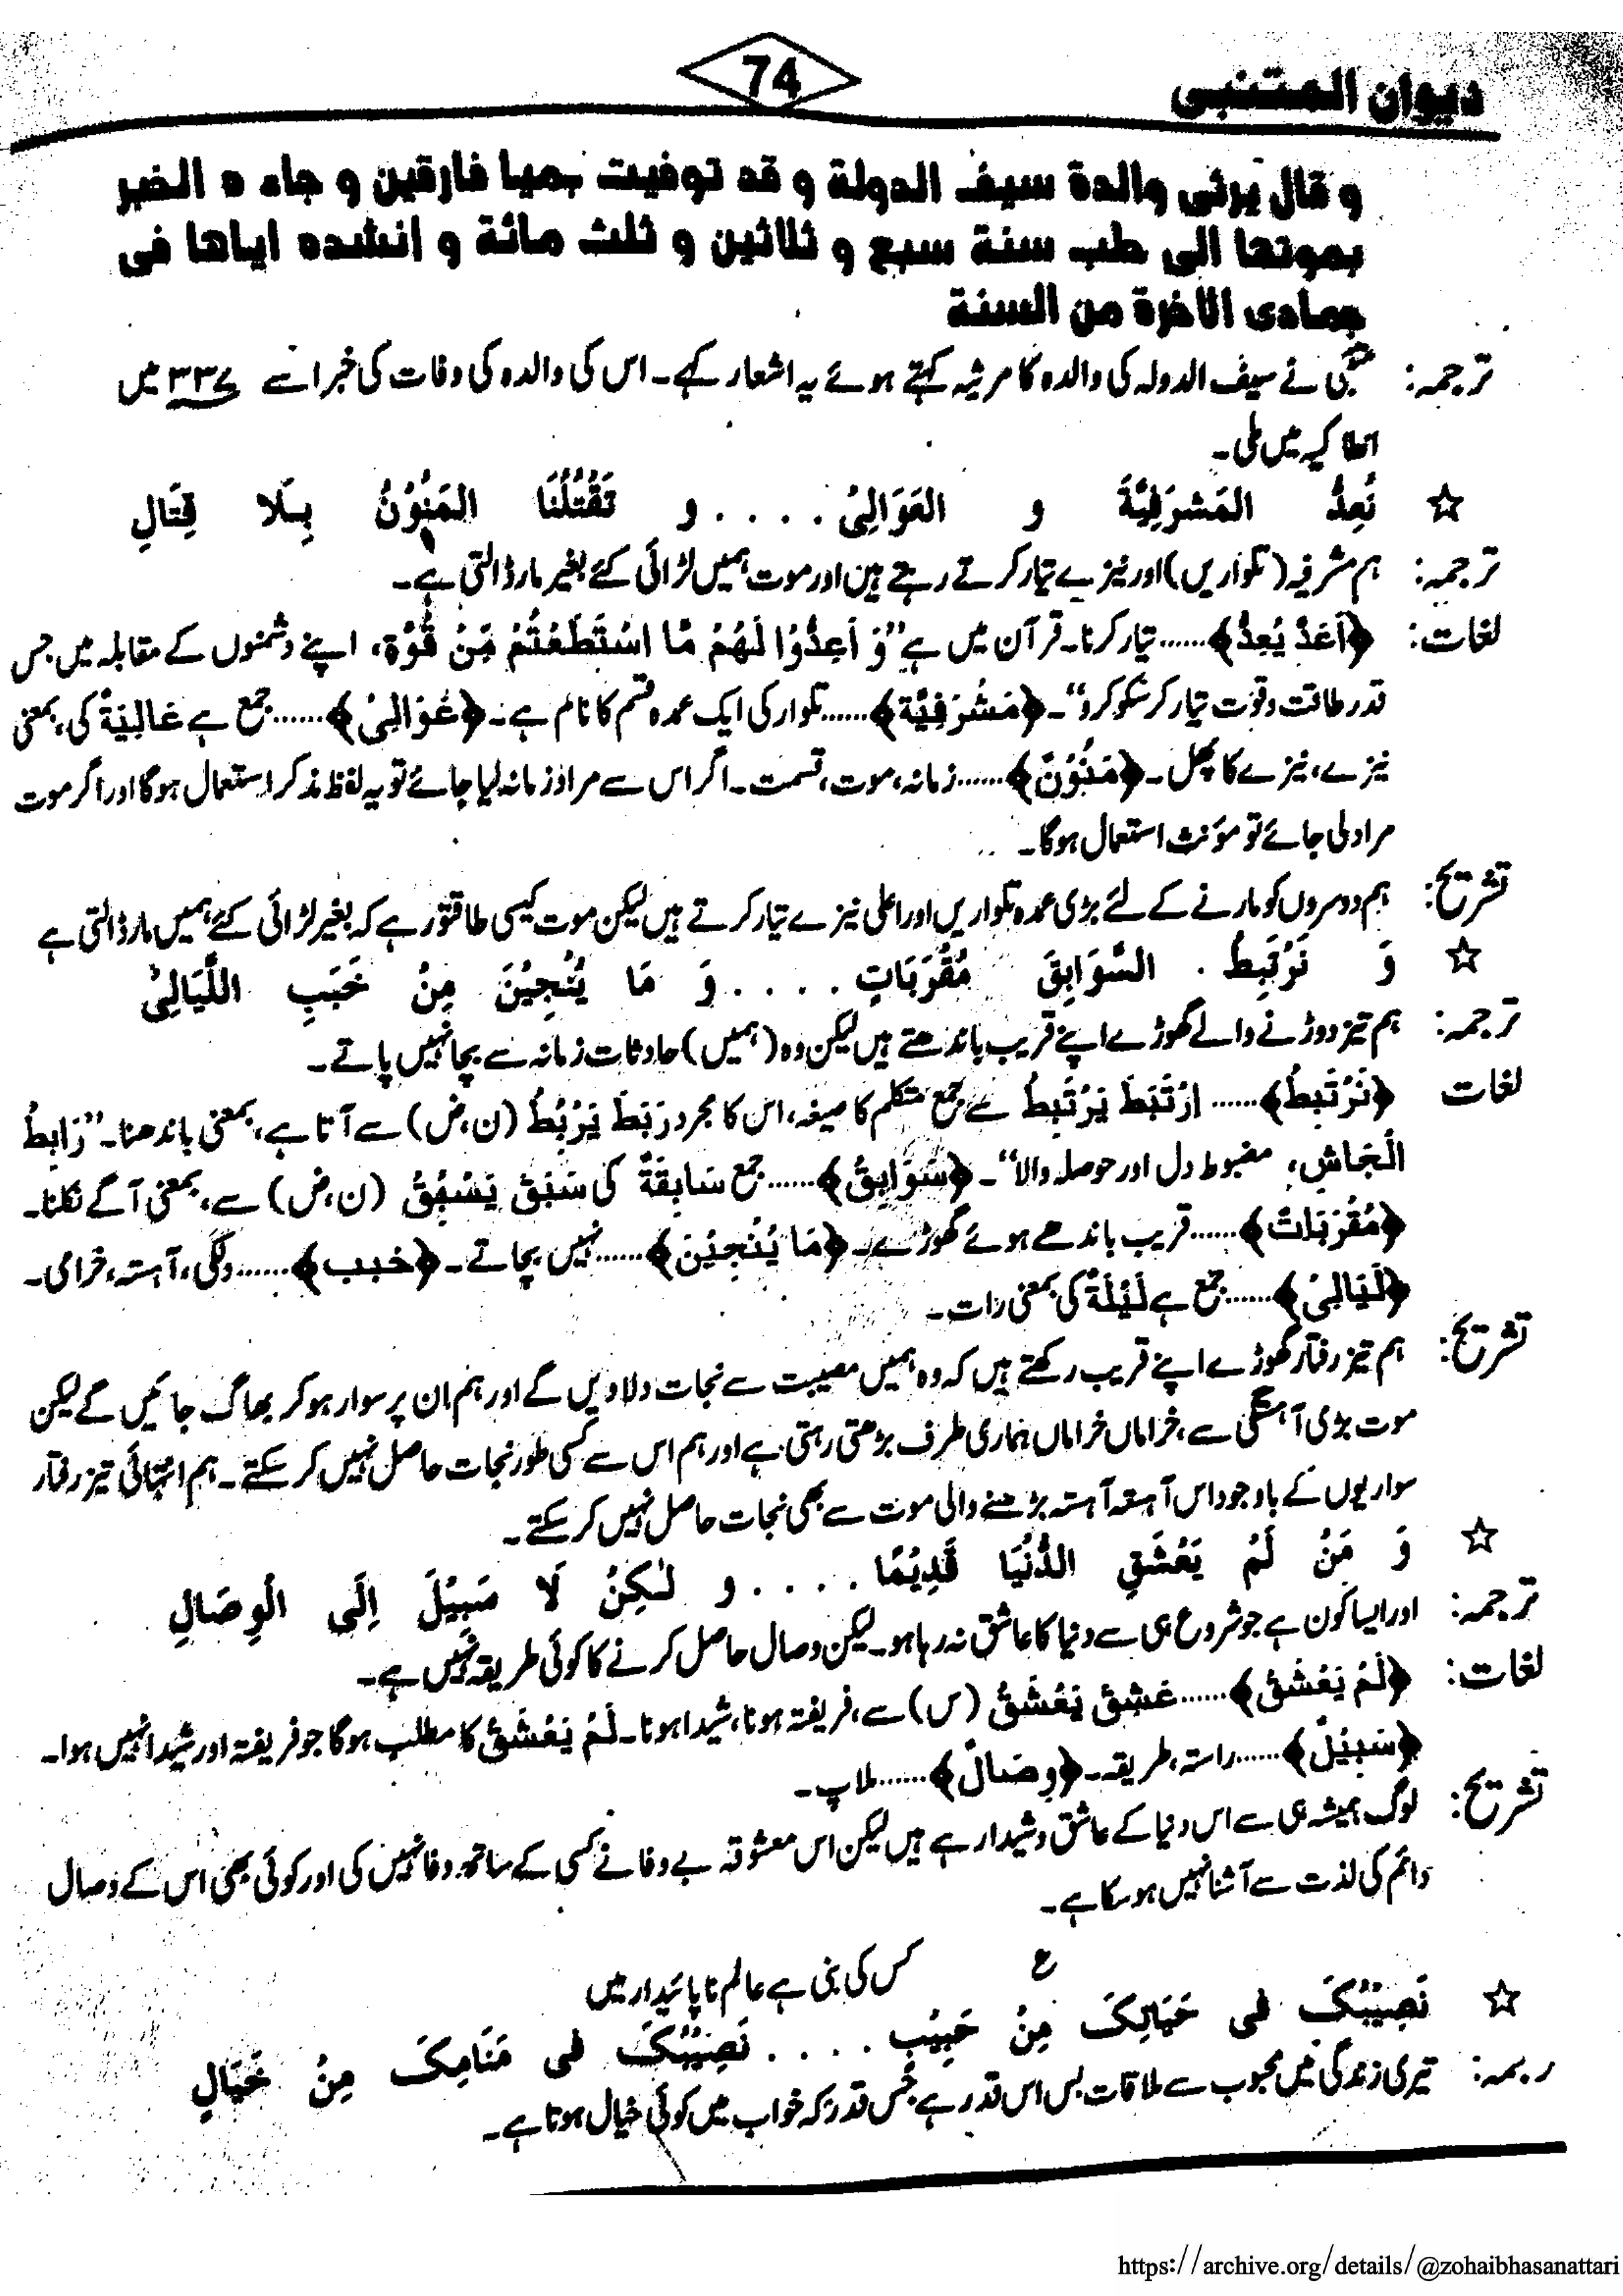 دیوان المتنبی
74
و قال یرثی والدة سیف الدولة و قد توفیت بمیا فارقین و جاء ہ الخبر
بموتها الی حلب سنة سبع و ثلاثین و ثلث مائة و انشده ایاها فی
جمادی الاخرة من السنة
ترجمہ: متنبّی نے سیف الدولہ کی والدہ کا مرثیہ کہتے ہوئے یہ اشعار کہے۔ اس کی والدہ کی وفات کی خبر اسے ۳۳۷ھ میں
انطاکیہ میں ملی۔
☆ نُعِدُّ المَشرَفِیَّةَ و العَوَالِیْ ..... و تَقْتُلُنَا المَنُوْنُ بِلَا قِتَالِ
ترجمہ: ہم مشرفیہ (تلواریں) اور نیزے تیار کرتے رہتے ہیں اور موت ہمیں لڑائی کئے بغیر مار ڈالتی ہے۔
لغات: ﴿اَعَدَّ یُعِدُّ﴾...... تیار کرنا۔ قرآن میں ہے ”وَ اَعِدُّوْا لَهُمْ مَّا اسْتَطَعْتُمْ مِّنْ قُوَّةٍ، اپنے دشمنوں کے مقابلہ میں جس
قدر طاقت وقوت تیار کر سکو کرو“۔ ﴿مَشْرَفِیَّة﴾......تلوار کی ایک عمدہ قسم کا نام ہے۔ ﴿عَوَالِیْ﴾......جمع ہے عَالِیَةٌ کی، بمعنی
نیزے، نیزے کا پھل۔ ﴿مَنُوْنٌ﴾......زمانہ، موت، قسمت۔ اگر اس سے مراد زمانہ لیا جائے تو یہ لفظ مذکر استعمال ہوگا اور اگر موت
مراد لی جائے تو مؤنث استعمال ہوگا۔
تشریح: ہم دوسروں کو مارنے کے لئے بڑی عمدہ تلواریں اور اعلی نیزے تیار کرتے ہیں لیکن موت کیسی طاقتور ہے کہ بغیر لڑائی کئے ہمیں مار ڈالتی ہے
☆ وَ نَرْتَبِطُ السَّوَابِقَ مُقْرَبَاتٍ ..... وَ مَا یُنْجِیْنَ مِنْ خَبَبِ اللَّیَالِیْ
ترجمہ: ہم تیز دوڑنے والے گھوڑے اپنے قریب باندھتے ہیں لیکن وہ (ہمیں) حادثات زمانہ سے بچا نہیں پاتے۔
لغات ﴿نَرْتَبِطُ﴾...... اِرْتَبَطَ یَرْتَبِطُ سے جمع متکلم کا صیغہ، اس کا مجرد رَبَطَ یَرْبُطُ (ن، ض) سے آتا ہے، بمعنی باندھنا۔ ”رَابِطُ
الْجَاشِ، مضبوط دل اور حوصلہ والا“۔ ﴿سَوَابِقُ﴾......جمع سَابِقَةٌ کی سَبَقَ یَسْبُقُ (ن، ض) سے، بمعنی آگے نکلنا۔
﴿مُقْرَبَاتٌ﴾......قریب باندھے ہوئے گھوڑے۔ ﴿مَا یُنْجِیْنَ﴾......نہیں بچاتے۔ ﴿خبب﴾......دلکی، آہستہ، خرامی۔
﴿لَیَالِیْ﴾......جمع ہے لَیْلَةٌ کی بمعنی رات۔
تشریح: ہم تیز رفتار گھوڑے اپنے قریب رکھتے ہیں کہ وہ ہمیں مصیبت سے نجات دلا دیں گے اور ہم ان پر سوار ہو کر بھاگ جائیں گے لیکن
موت بڑی آہستگی سے، خراماں خراماں ہماری طرف بڑھتی رہتی ہے اور ہم اس سے کسی طور نجات حاصل نہیں کر سکتے۔ ہم انتہائی تیز رفتار
سواریوں کے باوجود اس آہستہ آہستہ بڑھنے والی موت سے بھی نجات حاصل نہیں کر سکتے۔
☆ وَ مَنْ لَمْ یَعْشَقِ الدُّنْیَا قَدِیْمًا ..... و لٰکِنْ لَا سَبِیْلَ اِلَی الْوِصَالِ
ترجمہ: اور ایسا کون ہے جو شروع ہی سے دنیا کا عاشق نہ رہا ہو۔ لیکن وصال حاصل کرنے کا کوئی طریقہ نہیں ہے۔
لغات: ﴿لَمْ یَعْشَقْ﴾......عَشِقَ یَعْشَقُ (س) سے، فریفتہ ہونا، شیدا ہونا۔ لَمْ یَعْشَقْ کا مطلب ہوگا جو فریفتہ اور شیدا نہیں ہوا۔
﴿سَبِیْلٌ﴾......راستہ، طریقہ۔ ﴿وِصَالٌ﴾......ملاپ۔
تشریح: لوگ ہمیشہ ہی سے اس دنیا کے عاشق و شیدا رہے ہیں لیکن اس معشوقہ بے وفا نے کسی کے ساتھ وفا نہیں کی اور کوئی بھی اس کے وصال
دائم کی لذت سے آشنا نہیں ہو سکا ہے۔
ع کس کی بنی ہے عالم ناپائیدار میں
☆ نَصِیْبُکَ فی حَیَاتِکَ مِنْ حَبِیْبٍ ..... نَصِیْبُکَ فی مَنَامِکَ مِنْ خَیَالِ
ترجمہ: تیری زندگی میں محبوب سے ملاقات بس اس قدر ہے جس قدر کہ خواب میں کوئی خیال ہوتا ہے۔
https://archive.org/details/@zohaibhasanattari